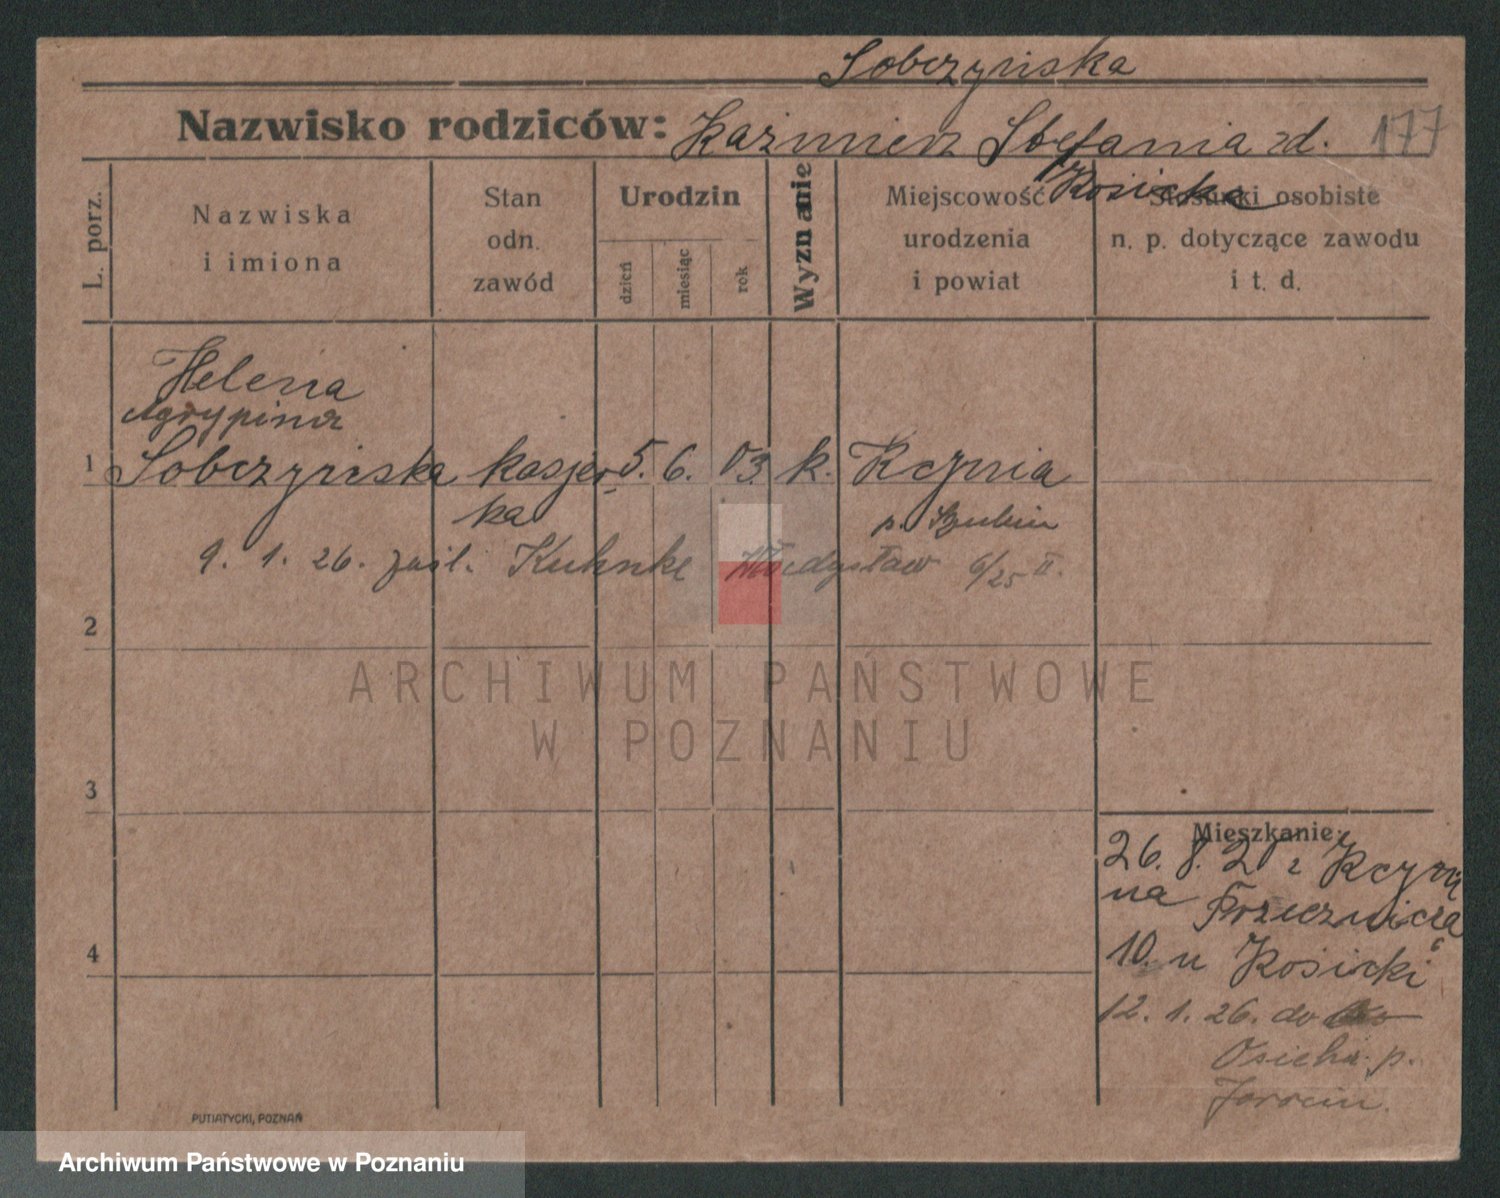 Sobczyńska
Nazwisko rodziców: Kaźmierz Stefania zd. 177
Kosicka
L. porz.
Nazwiska
i imiona
Stan
odn.
zawód
Urodzin
dzień
miesiąc
rok
Wyznanie
Miejscowość
urodzenia
i powiat
Stosunki osobiste
n. p. dotyczące zawodu
i t. d.
Helena
Agrypina
1 Sobczyńska kasjer- 5. 6. 03. k. Kcynia
ka p. Szubin
9. 1. 26. zaśl. Kuhnke Władysław 6/25 II.
2
ARCHIWUM PAŃSTWOWE
W POZNANIU
3
Mieszkanie:
26. 8. 2 z Kcyni
na
10. u Kosicki
4
12. 1. 26. do
p.
Jarocin.
PUTIATYCKI, POZNAŃ
Archiwum Państwowe w Poznaniu